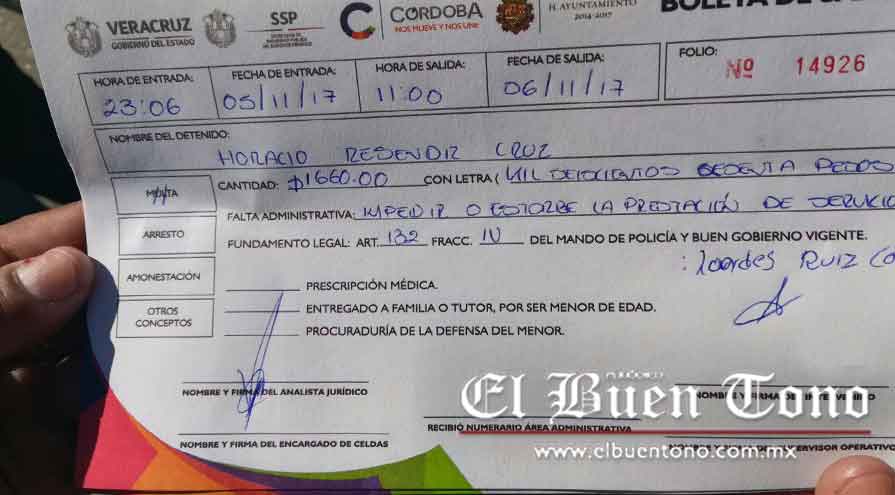 VERACRUZ
GOBIERNO DEL ESTADO
SSP
CÓRDOBA
NOS MUEVE Y NOS UNE
H. AYUNTAMIENTO
2014-2017
BOLETA DE
HORA DE ENTRADA: 23:06
FECHA DE ENTRADA: 05/11/17
HORA DE SALIDA: 11:00
FECHA DE SALIDA: 06/11/17
FOLIO: Nº 14926
NOMBRE DEL DETENIDO: HORACIO RESENDIZ CRUZ
MULTA
CANTIDAD: $1660.00 CON LETRA ( MIL SEISCIENTOS SESENTA PESOS
FALTA ADMINISTRATIVA: IMPEDIR O ESTORBE LA PRESTACIÓN DE SERVICIO
ARRESTO
FUNDAMENTO LEGAL: ART. 132 FRACC. IV DEL MANDO DE POLICÍA Y BUEN GOBIERNO VIGENTE.
: Lourdes Ruiz
AMONESTACIÓN
PRESCRIPCIÓN MÉDICA.
OTROS CONCEPTOS
ENTREGADO A FAMILIA O TUTOR, POR SER MENOR DE EDAD.
PROCURADURÍA DE LA DEFENSA DEL MENOR.
NOMBRE Y FIRMA DEL ANALISTA JURÍDICO
PERIÓDICO
El Buen Tono
RECIBIÓ NUMERARIO ÁREA ADMINISTRATIVA
NOMBRE Y FIRMA DEL ENCARGADO DE CELDAS
www.elbuentono.com.mx
SUPERVISOR OPERATIVO